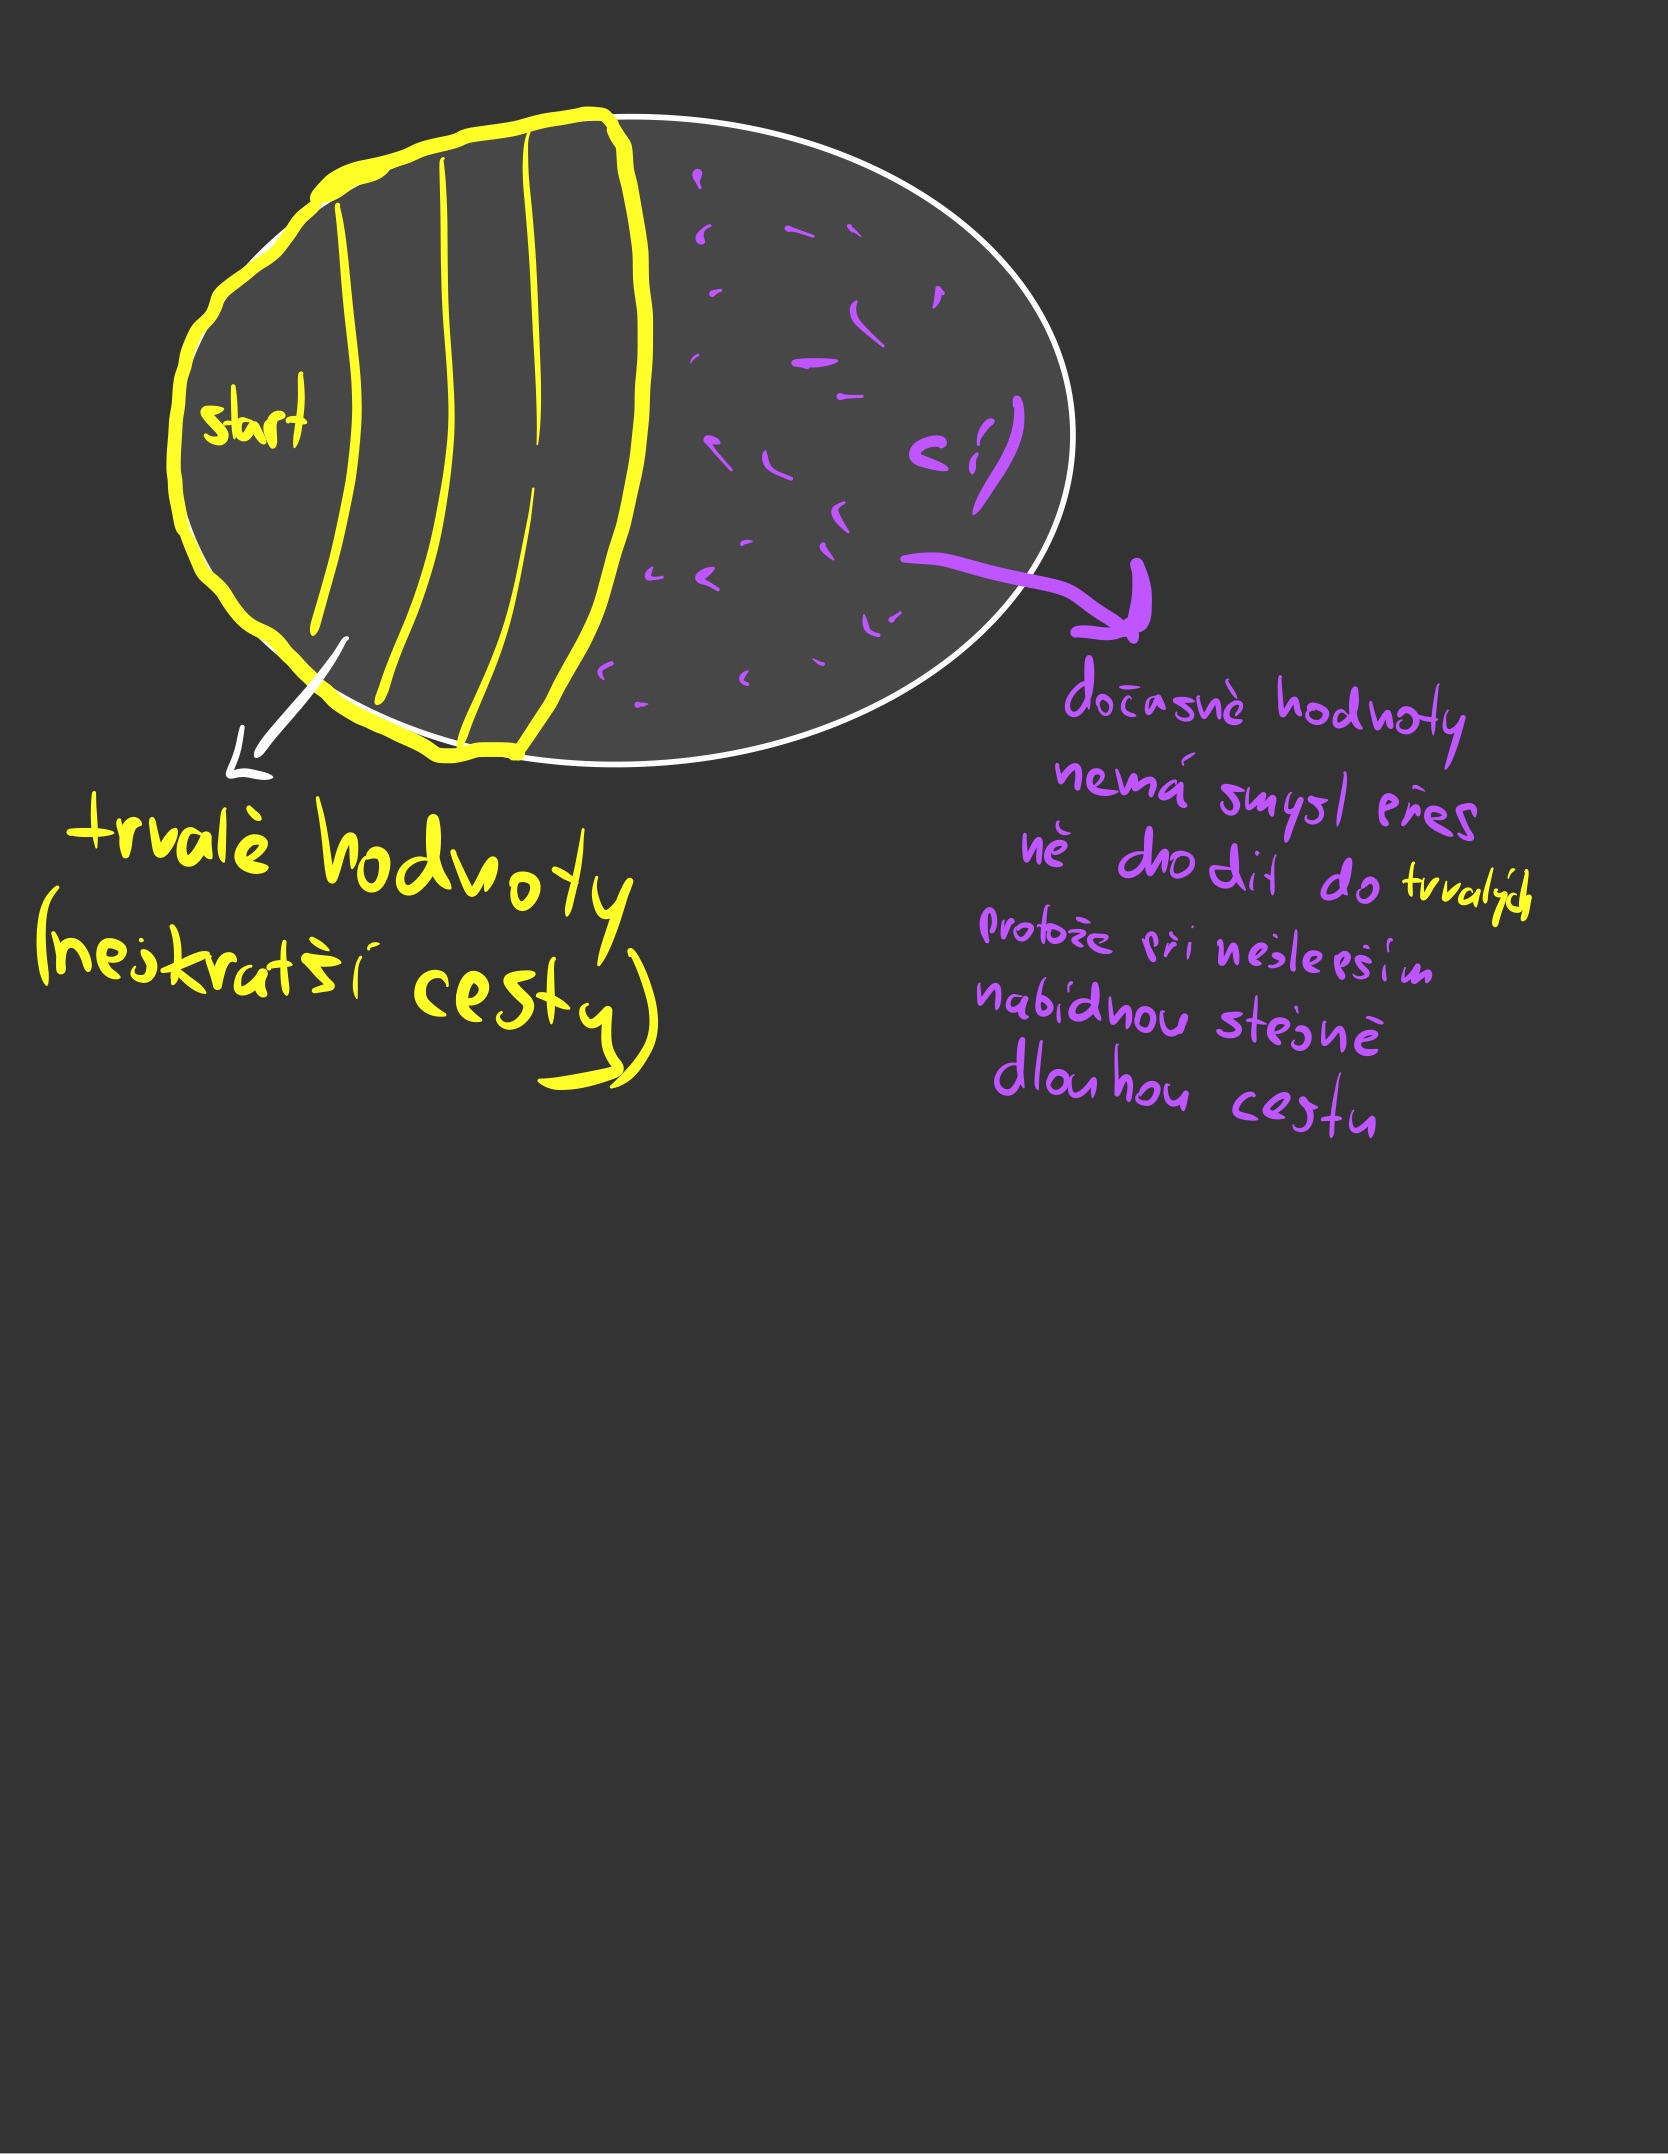 start
cíl
trvalé hodnoty
(nejkratší cesty)
dočasné hodnoty
nemá smysl přes
ně chodit do trvalých
protože při nejlepším
nabídnou stejně
dlouhou cestu